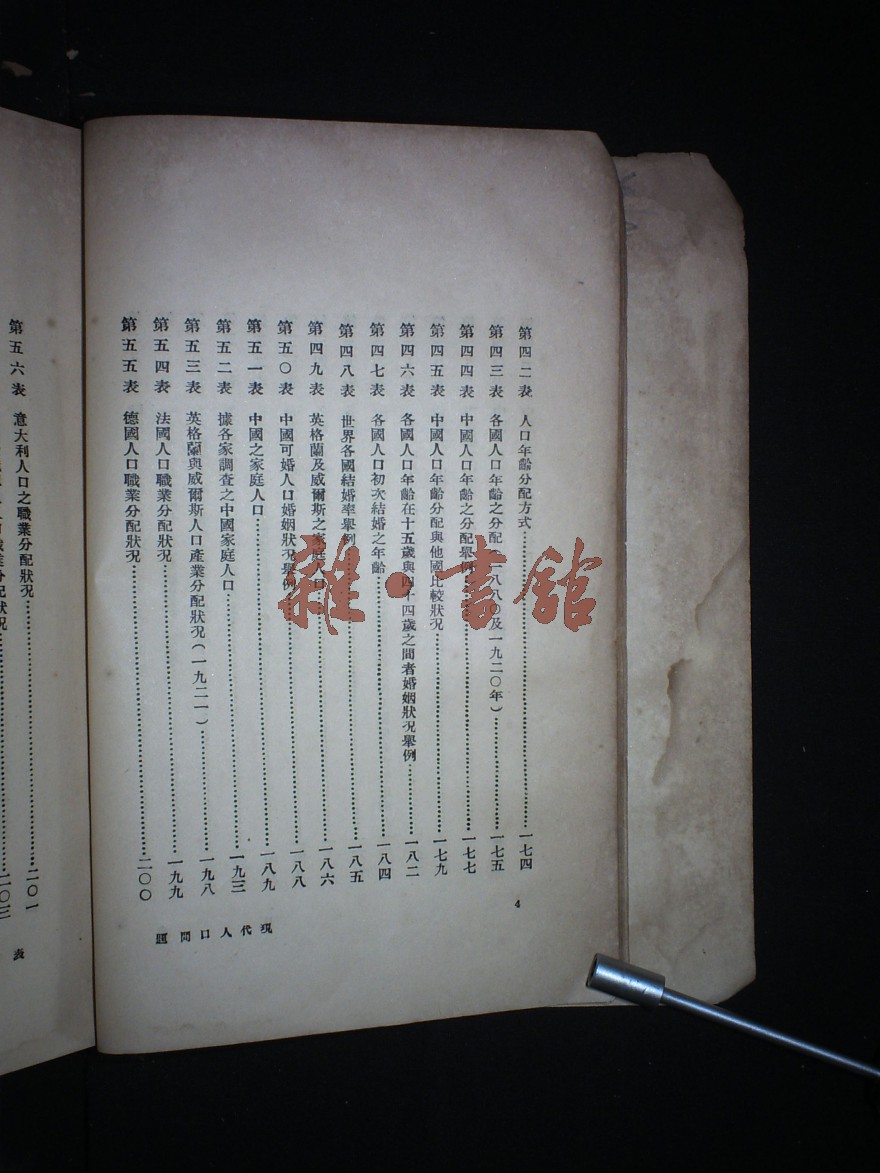 第四二表 人口年齡分配方式……一七四
第四三表 各國人口年齡之分配(一八八〇及一九二〇年)……一七五
第四四表 中國人口年齡之分配舉例……一七七
第四五表 中國人口年齡分配與他國比較狀況……一七九
第四六表 各國人口年齡在十五歲與四十四歲之間者婚姻狀況舉例……一八二
第四七表 各國人口初次結婚之年齡……一八四
第四八表 世界各國結婚率舉例……一八五
第四九表 英格蘭及威爾斯之家庭人口……一八六
第五〇表 中國可婚人口婚姻狀況舉例……一八八
第五一表 中國之家庭人口……一八九
第五二表 據各家調查之中國家庭人口……一九三
第五三表 英格蘭與威爾斯人口產業分配狀況(一九二一)……一九八
第五四表 法國人口職業分配狀況……一九九
第五五表 德國人口職業分配狀況……二〇〇
4
現代人口問題
第五六表 意大利人口之職業分配狀況……二〇一
二〇三
表
雜·書館